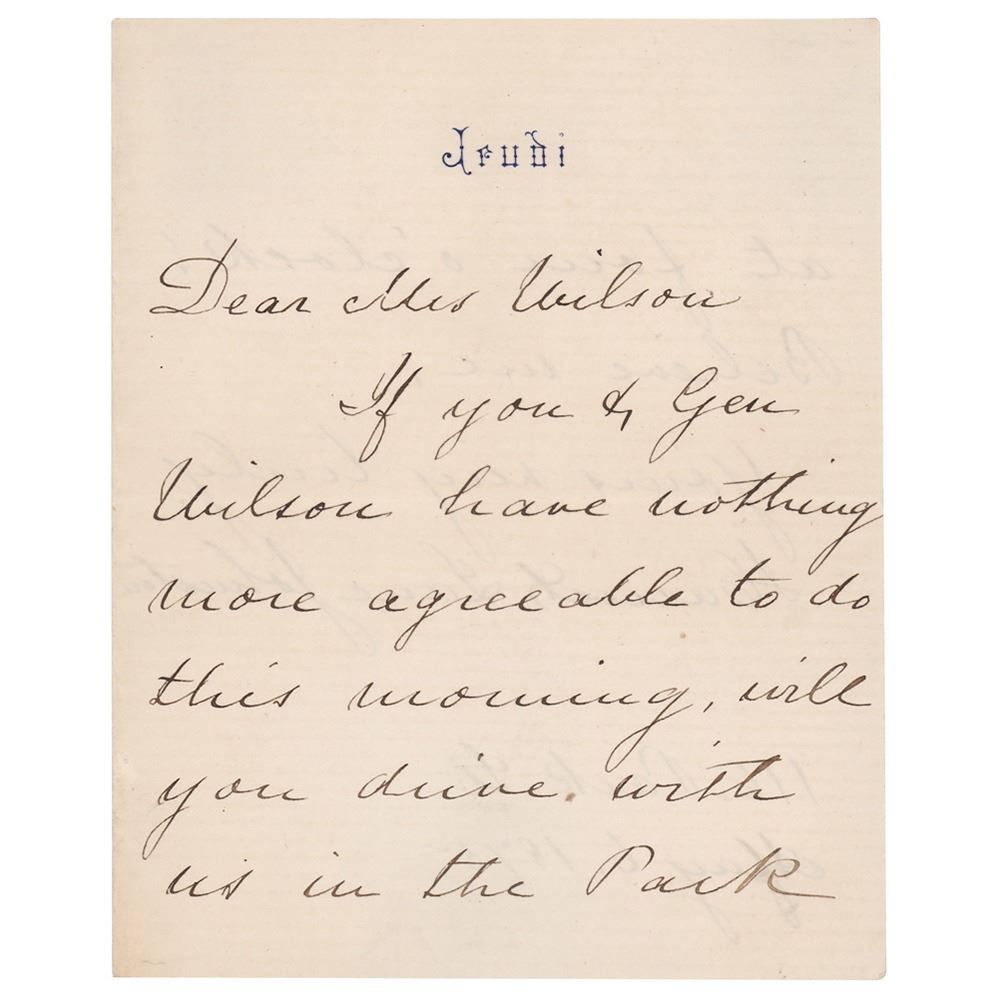 Jeudi
Dear Mrs Wilson
If you & Gen
Wilson have nothing
more agreeable to do
this morning, will
you drive with
us in the Park